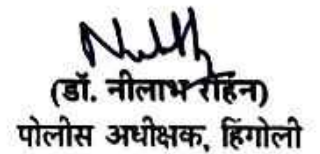 (डॉ. नीलाभ रोहन)
पोलीस अधीक्षक, हिंगोली